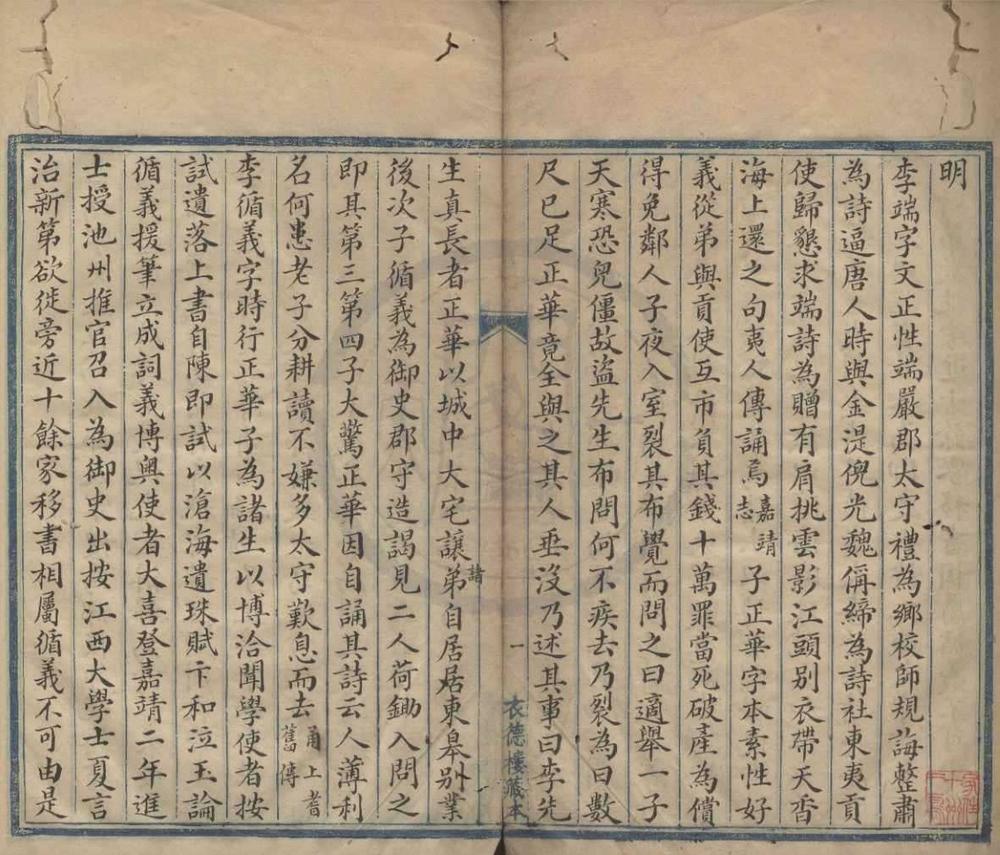 明
李端字文正性端嚴郡太守禮為鄉校師規誨整肅
為詩逼唐人時與金湜倪光魏偁締為詩社東夷貢
使歸懇求端詩為贈有肩挑雲影江頭别衣帶天香
海上還之句夷人傳誦焉嘉靖志 子正華字本素性好
義從弟與貢使互市負其錢十萬罪當死破產為償
得免鄰人子夜入室裂其布覺而問之曰適舉一子
天寒恐兒僵故盜先生布問何不疾去乃裂為曰數
尺已足正華竟全與之其人垂沒乃述其事曰李先
生真長者正華以城中大宅讓弟諸自居居東皋别業
後次子循義為御史郡守造謁見二人荷鋤入問之
即其第三第四子大驚正華因自誦其詩云人薄利
名何患老子分耕讀不嫌多太守歎息而去甬上耆舊傳
李循義字時行正華子為諸生以博洽聞學使者按
試遺落上書自陳即試以滄海遺珠賦卞和泣玉論
循義援筆立成詞義博奧使者大喜登嘉靖二年進
士授池州推官召入為御史出按江西大學士夏言
治新第欲徙旁近十餘家移書相屬循義不可由是
一
衣德樓藏本